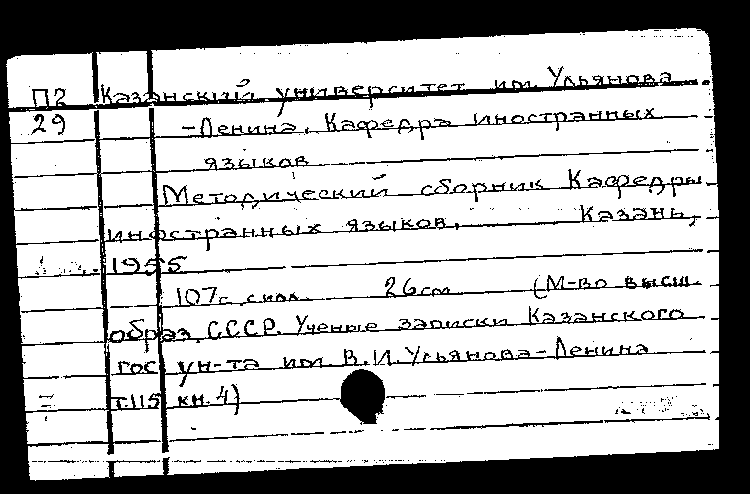 П2 Казанский университет им. Ульянова
29 -Ленина. Кафедра иностранных
языков
Методический сборник Кафедры
иностранных языков. Казань,
1955
107с. 26см (М-во высш.
образ. СССР. Ученые записки Казанского
гос ун-та им. В.И. Ульянова-Ленина
т.115 кн. 4)